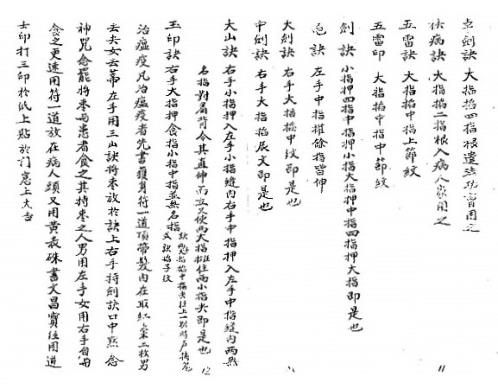 立劍訣 大指掐四指根遣法
袪病訣 大指掐二指根入病人家用之
五雷訣 大指掐中指上節紋
五雷印 大指掐中指中節紋
劍訣 小指押四指中指押小指大指押中指四指押大指即是也
訣 左手中指 餘指皆伸
大劍訣 右手大指掐中紋即是也
中劍訣 右手大指掐辰文即是也
大山訣 右手小指押入左手小指縫內右手中指押入左手中指縫內兩無
名指對屠背令其直伸而立又使兩大指 住兩小指尖即是也
玉印訣 右手大指押食指小指中指並無名指
治瘟疫凡治瘟疫者先書 身符一道頂帶髮內在取紅棗二枚男
去大女去蒂左手用三山訣將棗放於訣上右手持劍訣口中默念
神咒念罷將棗與患者食之其持棗之人男用左手女用右手自
食之更速用符一道放在病人頭又用黃表硃書文昌寶 用道
士印打三印於紙上貼於門 上大吉